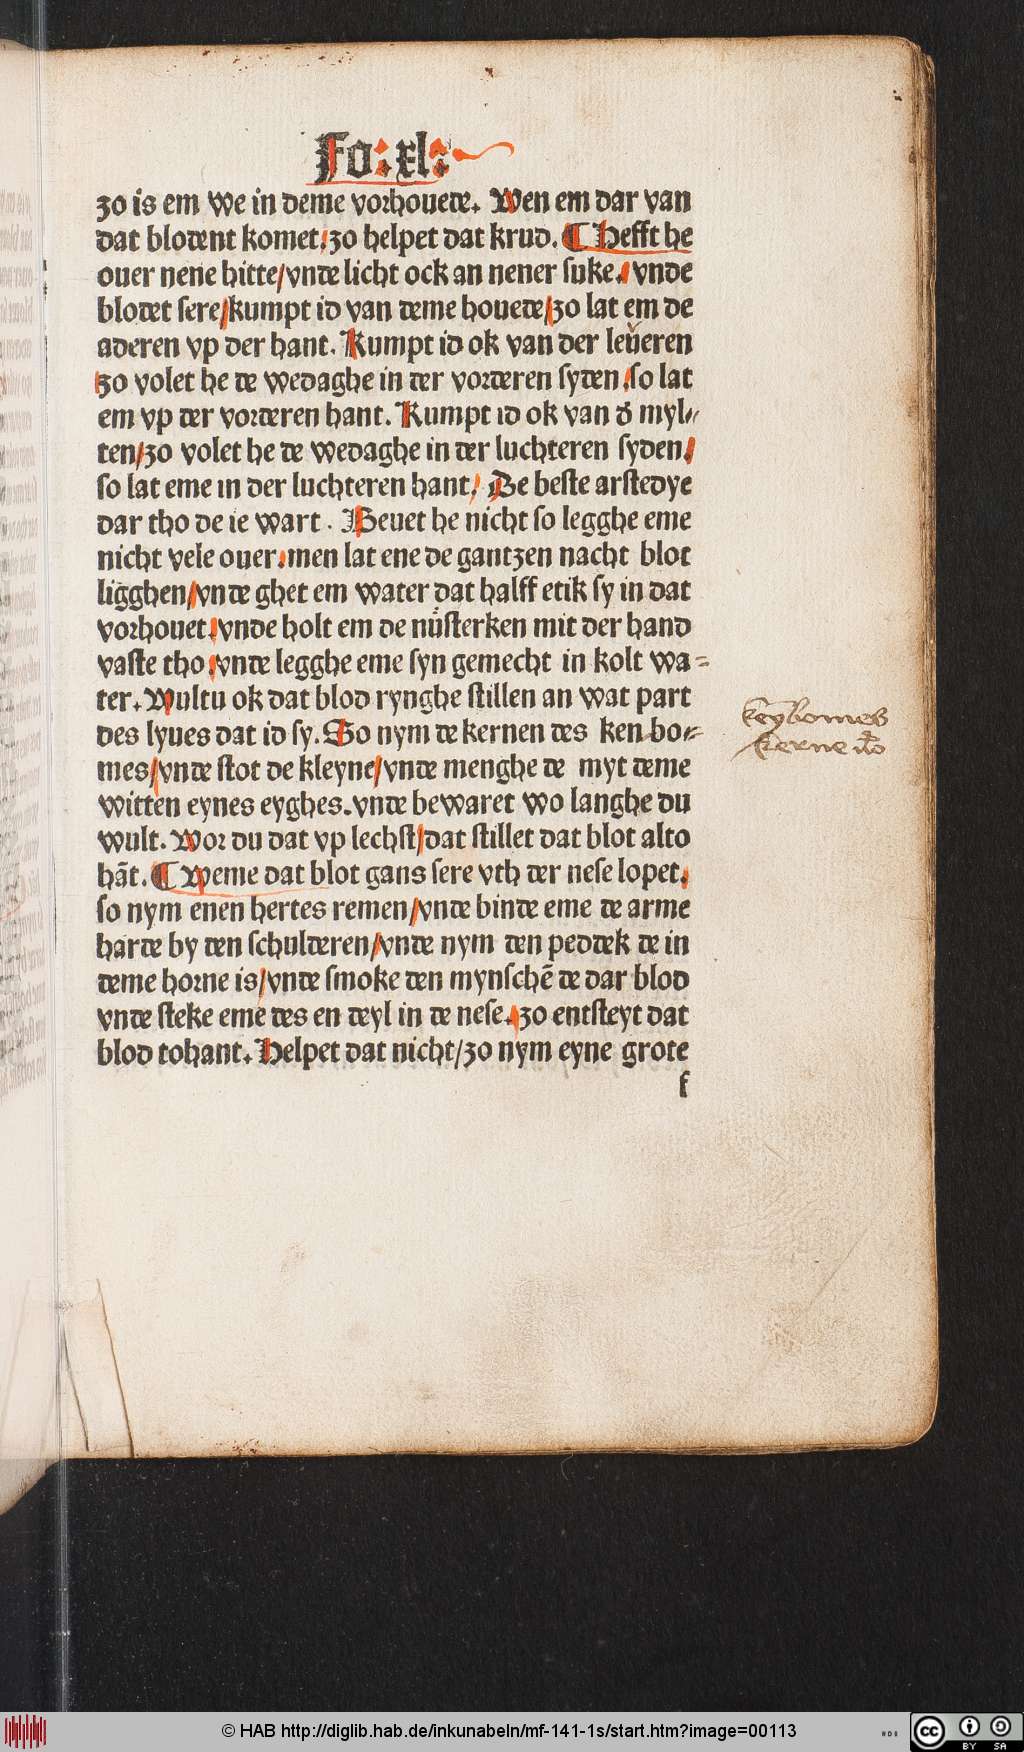 Fo: xl:
zo is em we in deme vorhouede. Wen em dar van
dat blodent komet: zo helpet dat krud. ¶ Hefft he
ouer nene hitte/vnde licht ock an nener suke. vnde
blodet sere/kumpt id van deme houede/zo lat em de
aderen vp der hant. Kumpt id ok van der leueren
zo volet he de wedaghe in der vorderen syden. so lat
em vp der vorderen hant. Kumpt id ok van đ myl⸗
ten/zo volet he de wedaghe in der luchteren syden/
so lat eme in der luchteren hant. De beste arstedye
dar tho de ie wart. Beuet he nicht so legghe eme
nicht vele ouer. men lat ene de gantzen nacht blot
ligghen/vnde ghet em water dat halff etik sy in dat
vorhouet. vnde holt em de nüsterken mit der hand
vaste tho. vnde legghe eme syn gemecht in kolt wa⸗
ter. Wultu ok dat blod rynghe stillen an wat part
des lyues dat id sy. So nym de kernen des ken bo⸗
mes/vnde stot de kleyne/vnde menghe de myt deme
witten eynes eyghes. vnde bewaret wo langhe du
wult. Wor du dat vp lechst/dat stillet dat blot alto
hāt. ¶ Weme dat blot gans sere vth der nese lopet.
so nym enen hertes remen/vnde binde eme de arme
harde by den schulderen/vnde nym den peddek de in
deme horne is/vnde smoke den mynschē de dar blod
vnde steke eme des en deyl in de nese. zo entsteyt dat
blod tohant. Helpet dat nicht/zo nym eyne grote
f
keynbomes
kerne
© HAB http://diglib.hab.de/inkunabeln/mf-141-1s/start.htm?image=00113
cc
BY SA